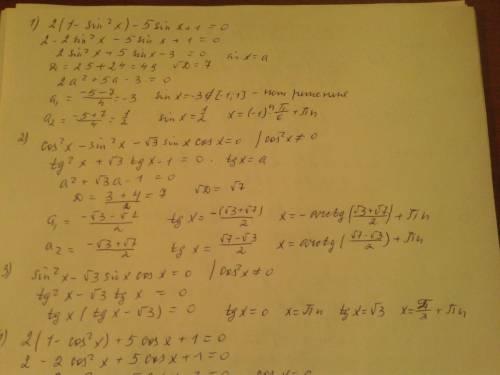 1) 2(1 - sin²x) - 5 sin x + 1 = 0
2 - 2 sin²x - 5 sin x + 1 = 0
2 sin²x + 5 sin x - 3 = 0 sin x = a
D = 25 + 24 = 49 √D = 7
2a² + 5a - 3 = 0
a₁ = (-5-7)/4 = -3 sin x = -3 ∉ [-1; 1] - нет решения
a₂ = (-5+7)/4 = 1/2 sin x = 1/2 x = (-1)ⁿ π/6 + πn
2) cos²x - sin²x - √3 sin x cos x = 0 | cos²x ≠ 0
tg²x + √3 tg x - 1 = 0. tg x = a
a² + √3 a - 1 = 0
D = (3 + 4)/2 = 7 √D = √7
a₁ = (-√3 - √7)/2 tg x = -(√3+√7)/2 x = -arctg((√3+√7)/2) + πn
a₂ = (-√3+√7)/2 tg x = (√7-√3)/2 x = arctg((√7-√3)/2) + πn
3) sin²x - √3 sin x cos x = 0 | cos²x ≠ 0
tg²x - √3 tg x = 0
tg x (tg x - √3) = 0 tg x = 0 x = πn tg x = √3 x = π/3 + πn
) 2(1 - cos²x) + 5 cos x + 1 = 0
2 - 2 cos²x + 5 cos x + 1 = 0